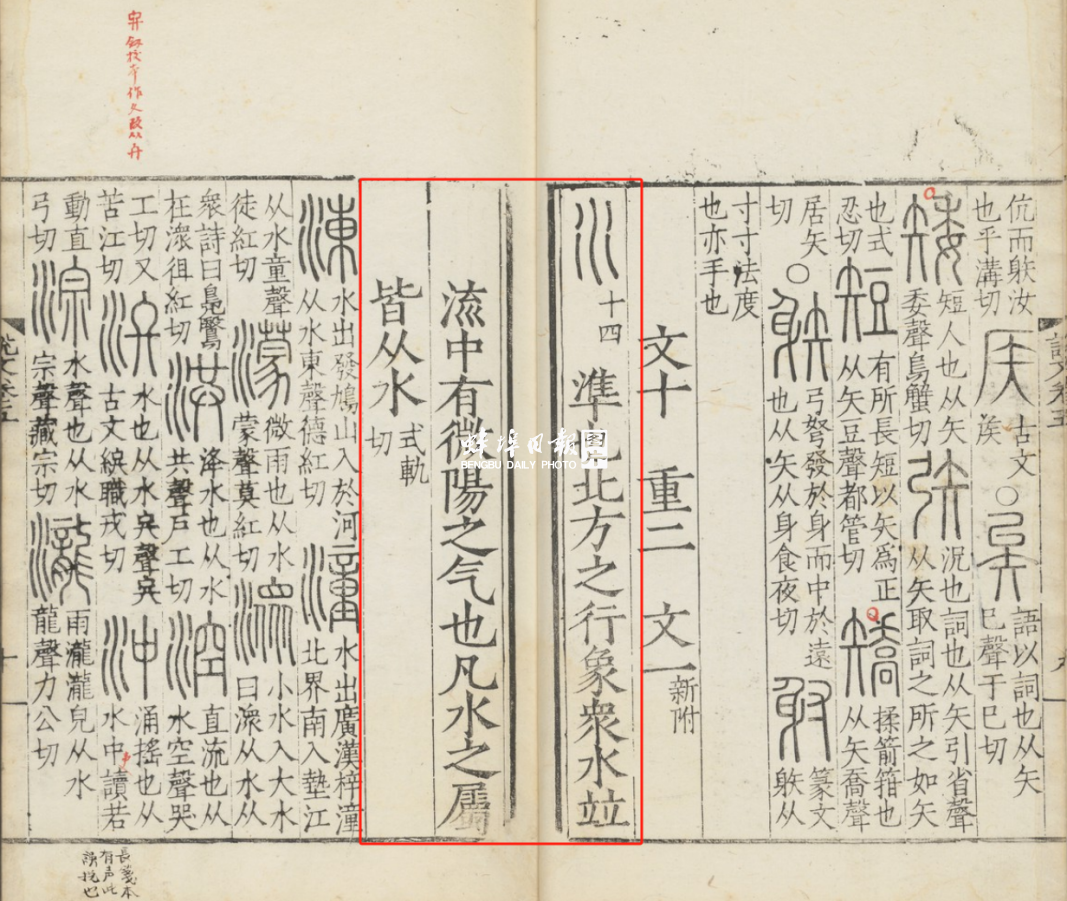 說文卷五
九
伉而躲汝
也乎溝切
古文
矦
○矣
語以詞也从矢
巳聲于巳切
矮
短人也从矢
委聲烏蟹切
矤
況也詞也从矢引省聲
从矢取詞之所之如矢
也式
忍切
短
有所長短以矢爲正
从矢豆聲都管切
矯
揉箭箝也
从矢喬聲
居矢
切
○躲
弓弩發於身而中於遠
也从矢从身食夜切
射
篆文
躲从
寸寸法度
也亦手也
文十 重二 文一新附
水 十四 準也北方之行象衆水竝
流中有微陽之气也凡水之屬
皆从水
式軌
切
涷
水出發鳩山入於河
从水東聲德紅切
潼
水出廣漢梓潼
北界南入墊江
从水童聲
徒紅切
濛
微雨也从水
蒙聲莫紅切
潀
小水入大水
曰潀从水从
衆詩曰鳧鷖
在潀徂紅切
洪
洚水也从水
共聲戶工切
涳
直流也从
水空聲哭
工切又
苦江切
水也从水 聲
古文 職戎切
沖
涌搖也从
水中讀若
動直
弓切
淙
水聲也从水
宗聲藏宗切
瀧
雨瀧瀧皃从水
龍聲力公切
說文卷五
十一
長箋本
有声此
誤挩也
蚌埠日報
BENGBU DAILY PHOTO